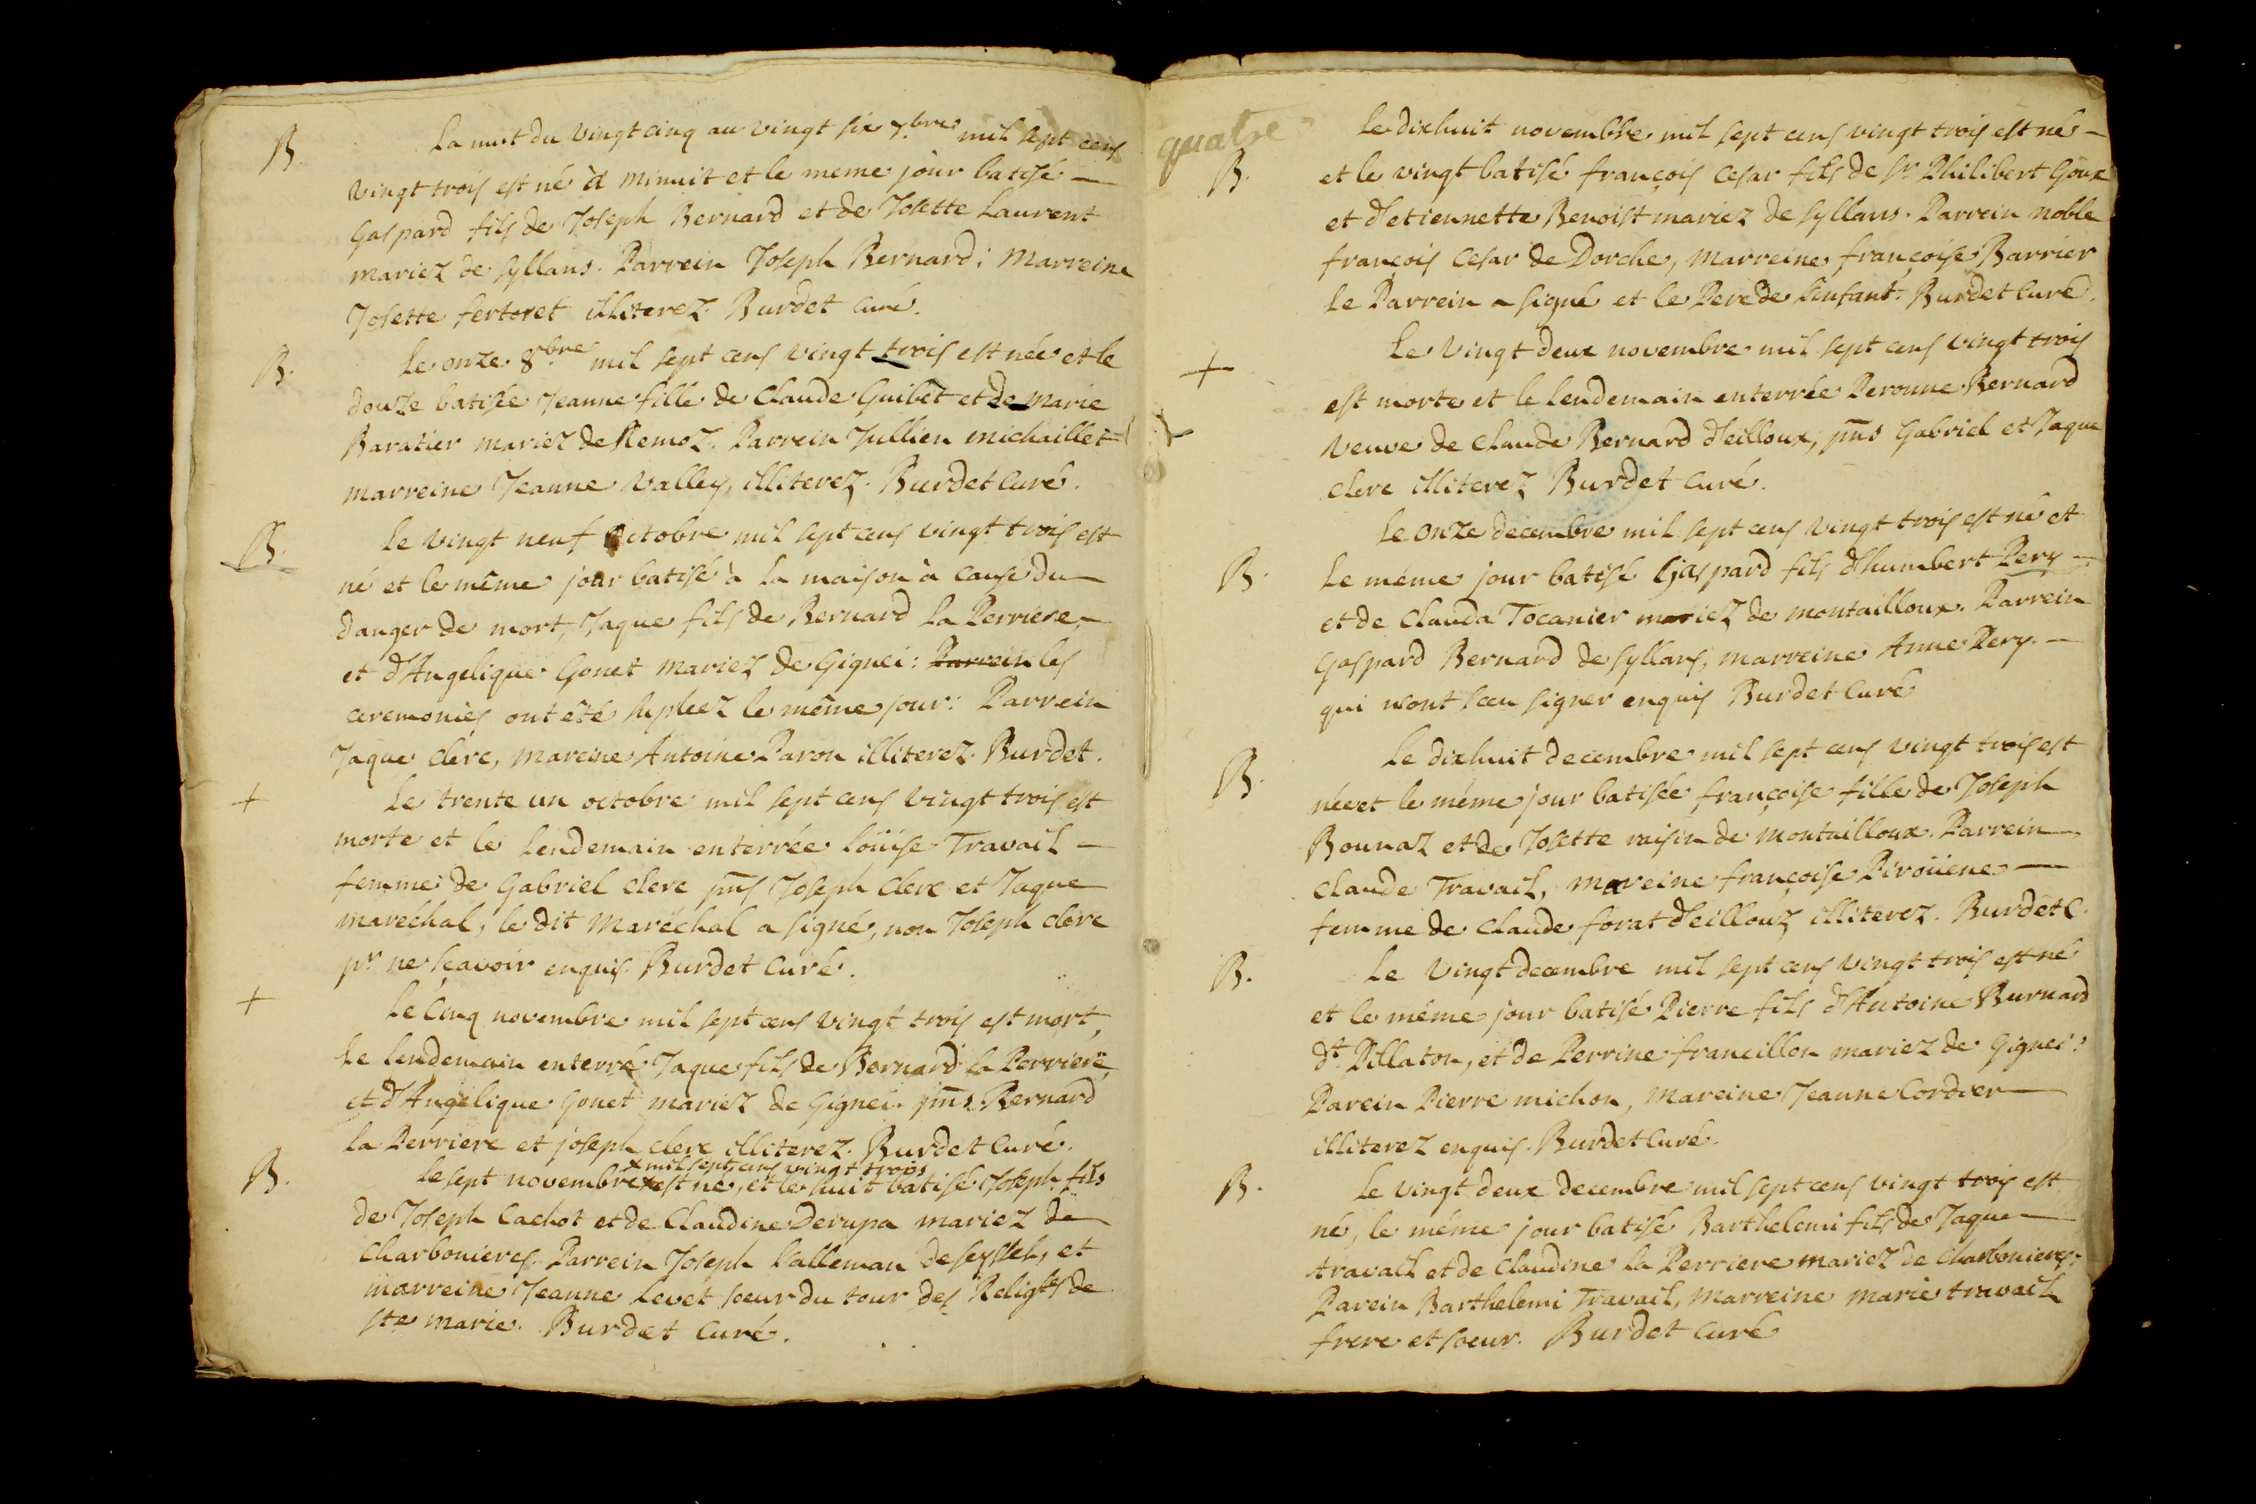 B.
La nuit du vingt cinq au vingt six 7.bre mil sept cens
vingt trois est né à minuit et le meme jour batisé —
Gaspard fils de Joseph Bernard et de Josette Laurent
mariez de Syllans. Parrein Joseph Bernard; Marreine
Josette fertoret illiterez. Burdet Curé.
B.
Le onze 8.bre mil sept cens vingt trois est née et le
douze batisée Jeanne fille de Claude Guibet et de Marie
Baratier mariez de Remoz. Parrein Jullien michaillet
marreine Jeanne Valley, illiterez. Burdet Curé.
B.
Le vingt neuf Octobre mil sept cens vingt trois est
né et le même jour batisé à la maison à cause du —
danger de mort, Jaque fils de Bernard la Perriere, —
et d'Angelique Gonet mariez de Gignei: Parrein les
ceremonies ont été supleez le même jour: Parrein
Jaque Clerc, Mareine Antoine Paron illiterez. Burdet.
+
Le trente un octobre mil sept cens vingt trois est
morte et le lendemain enterrée Loüise Travail —
femme de Gabriel clerc pns Joseph Clerc et Jaque
maréchal, le dit Maréchal a signé, non Joseph clerc
pr ne sçavoir enquis. Burdet Curé.
+
Le Cinq novembre mil sept cens vingt trois est mort,
le lendemain enterré Jaque fils de Bernard la Perriere,
et d'Angelique Gonet mariez de Gignei. pns Bernard
la Perriere et joseph clerc illiterez. Burdet Curé.
B.
x mil sept cens vingt trois
Le sept novembre x est né, et le huit batisé Joseph fils
de Joseph Cachot et de Claudine Derupa mariez de
Charbonieres. Parrein Joseph Valleman de Seyssel, et
marreine Jeanne Levet soeur du tour des Religses de
ste marie. Burdet Curé.
quatre
B.
Le dixhuit novembre mil sept cens vingt trois est né —
et le vingt batisé françois Cesar fils de Sr. Philibert Goux
et d'etiennette Benoist mariez de Syllans. Parrein noble
françois Cesar de Dorche, marreine françoise Barrier
Le Parrein a signé et le Pere de l'enfant. Burdet Curé.
+
Le Vingt deux novembre mil sept cens vingt trois
est morte et le lendemain enterrée Peronne Bernard
veuve de Claude Bernard d'eilloux, pns Gabriel et Jaque
Clerc illiterez Burdet Curé.
B.
Le onze decembre mil sept cens vingt trois est né et
le même jour batisé Gaspard fils d'humbert Pery —
et de Clauda Tocanier mariez de montailloux. Parrein
Gaspard Bernard de Syllans, marreine Anne Pery. —
qui n'ont sceu signer enquis Burdet Curé
B.
Le dixhuit decembre mil sept cens vingt trois est
née et le même jour batisée françoise fille de Joseph
Bonnaz et de Josette raisin de montailloux. Parrein —
Claude Travail, mareine françoise Piroüene —
femme de Claude forat d'eillouz illiterez. Burdet C.
B.
Le vingt decembre mil sept cens vingt trois est né
et le même jour batisé Pierre fils d'Antoine Burnard
dt. Pillaton, et de Perrine francillon mariez de Gignei:
Parein Pierre michon, Mareine Jeanne Cordier —
illiterez enquis. Burdet Curé.
B.
Le vingt deux decembre mil sept cens vingt trois est
né, le même jour batisé Barthelemi fils de Jaque —
travail et de Claudine la Perriere mariez de Charbonieres.
Parein Barthelemi Travail, Marreine marie travail
frere et soeur. Burdet Curé